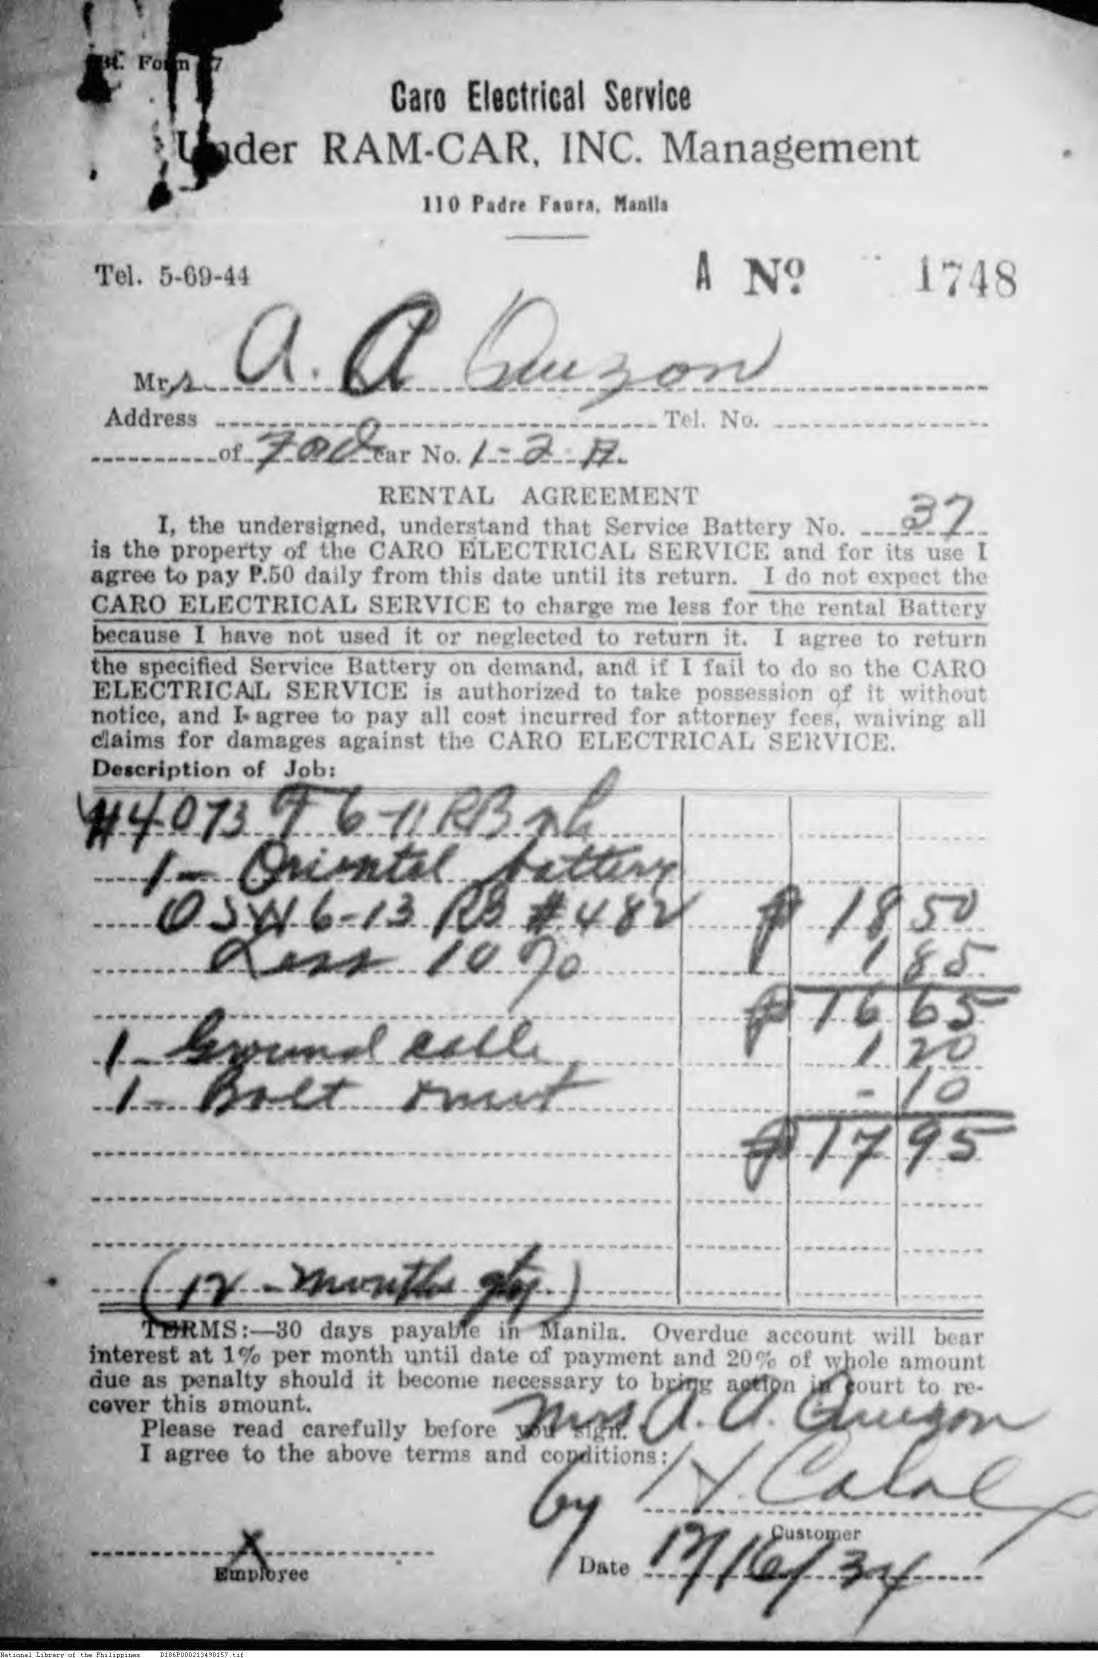 Caro Electrical Service
Under RAM-CAR, INC. Management
110 Padre Faura, Manila
Tel. 5-69-44
A No. 1748
Mrs. A. A. Quezon
Address Tel. No.
of Ford Car No. 1-2-A
RENTAL AGREEMENT
I, the undersigned, understand that Service Battery No. 37
is the property of the CARO ELECTRICAL SERVICE and for its use I
agree to pay P.50 daily from this date until its return. I do not expect the
CARO ELECTRICAL SERVICE to charge me less for the rental Battery
because I have not used it or neglected to return it. I agree to return
the specified Service Battery on demand, and if I fail to do so the CARO
ELECTRICAL SERVICE is authorized to take possession of it without
notice, and I agree to pay all cost incurred for attorney fees, waiving all
claims for damages against the CARO ELECTRICAL SERVICE.
Description of Job:
#4073 T 6-11 RB
1- Oriental battery
OSW 6-13 RB #482 ₱ 18 50
Less 10% 1 85
₱ 16 65
1- Ground cable 1 20
1- Bolt & nut - 10
₱ 17 95
(12 - months gty.)
TERMS:—30 days payable in Manila. Overdue account will bear
interest at 1% per month until date of payment and 20% of whole amount
due as penalty should it become necessary to bring action in court to re-
cover this amount.
Please read carefully before you sign.
Mrs. A. A. Quezon
I agree to the above terms and conditions:
by
Customer
Employee
Date 12/16/34
National Library of the Philippines D186P000213498157.tif